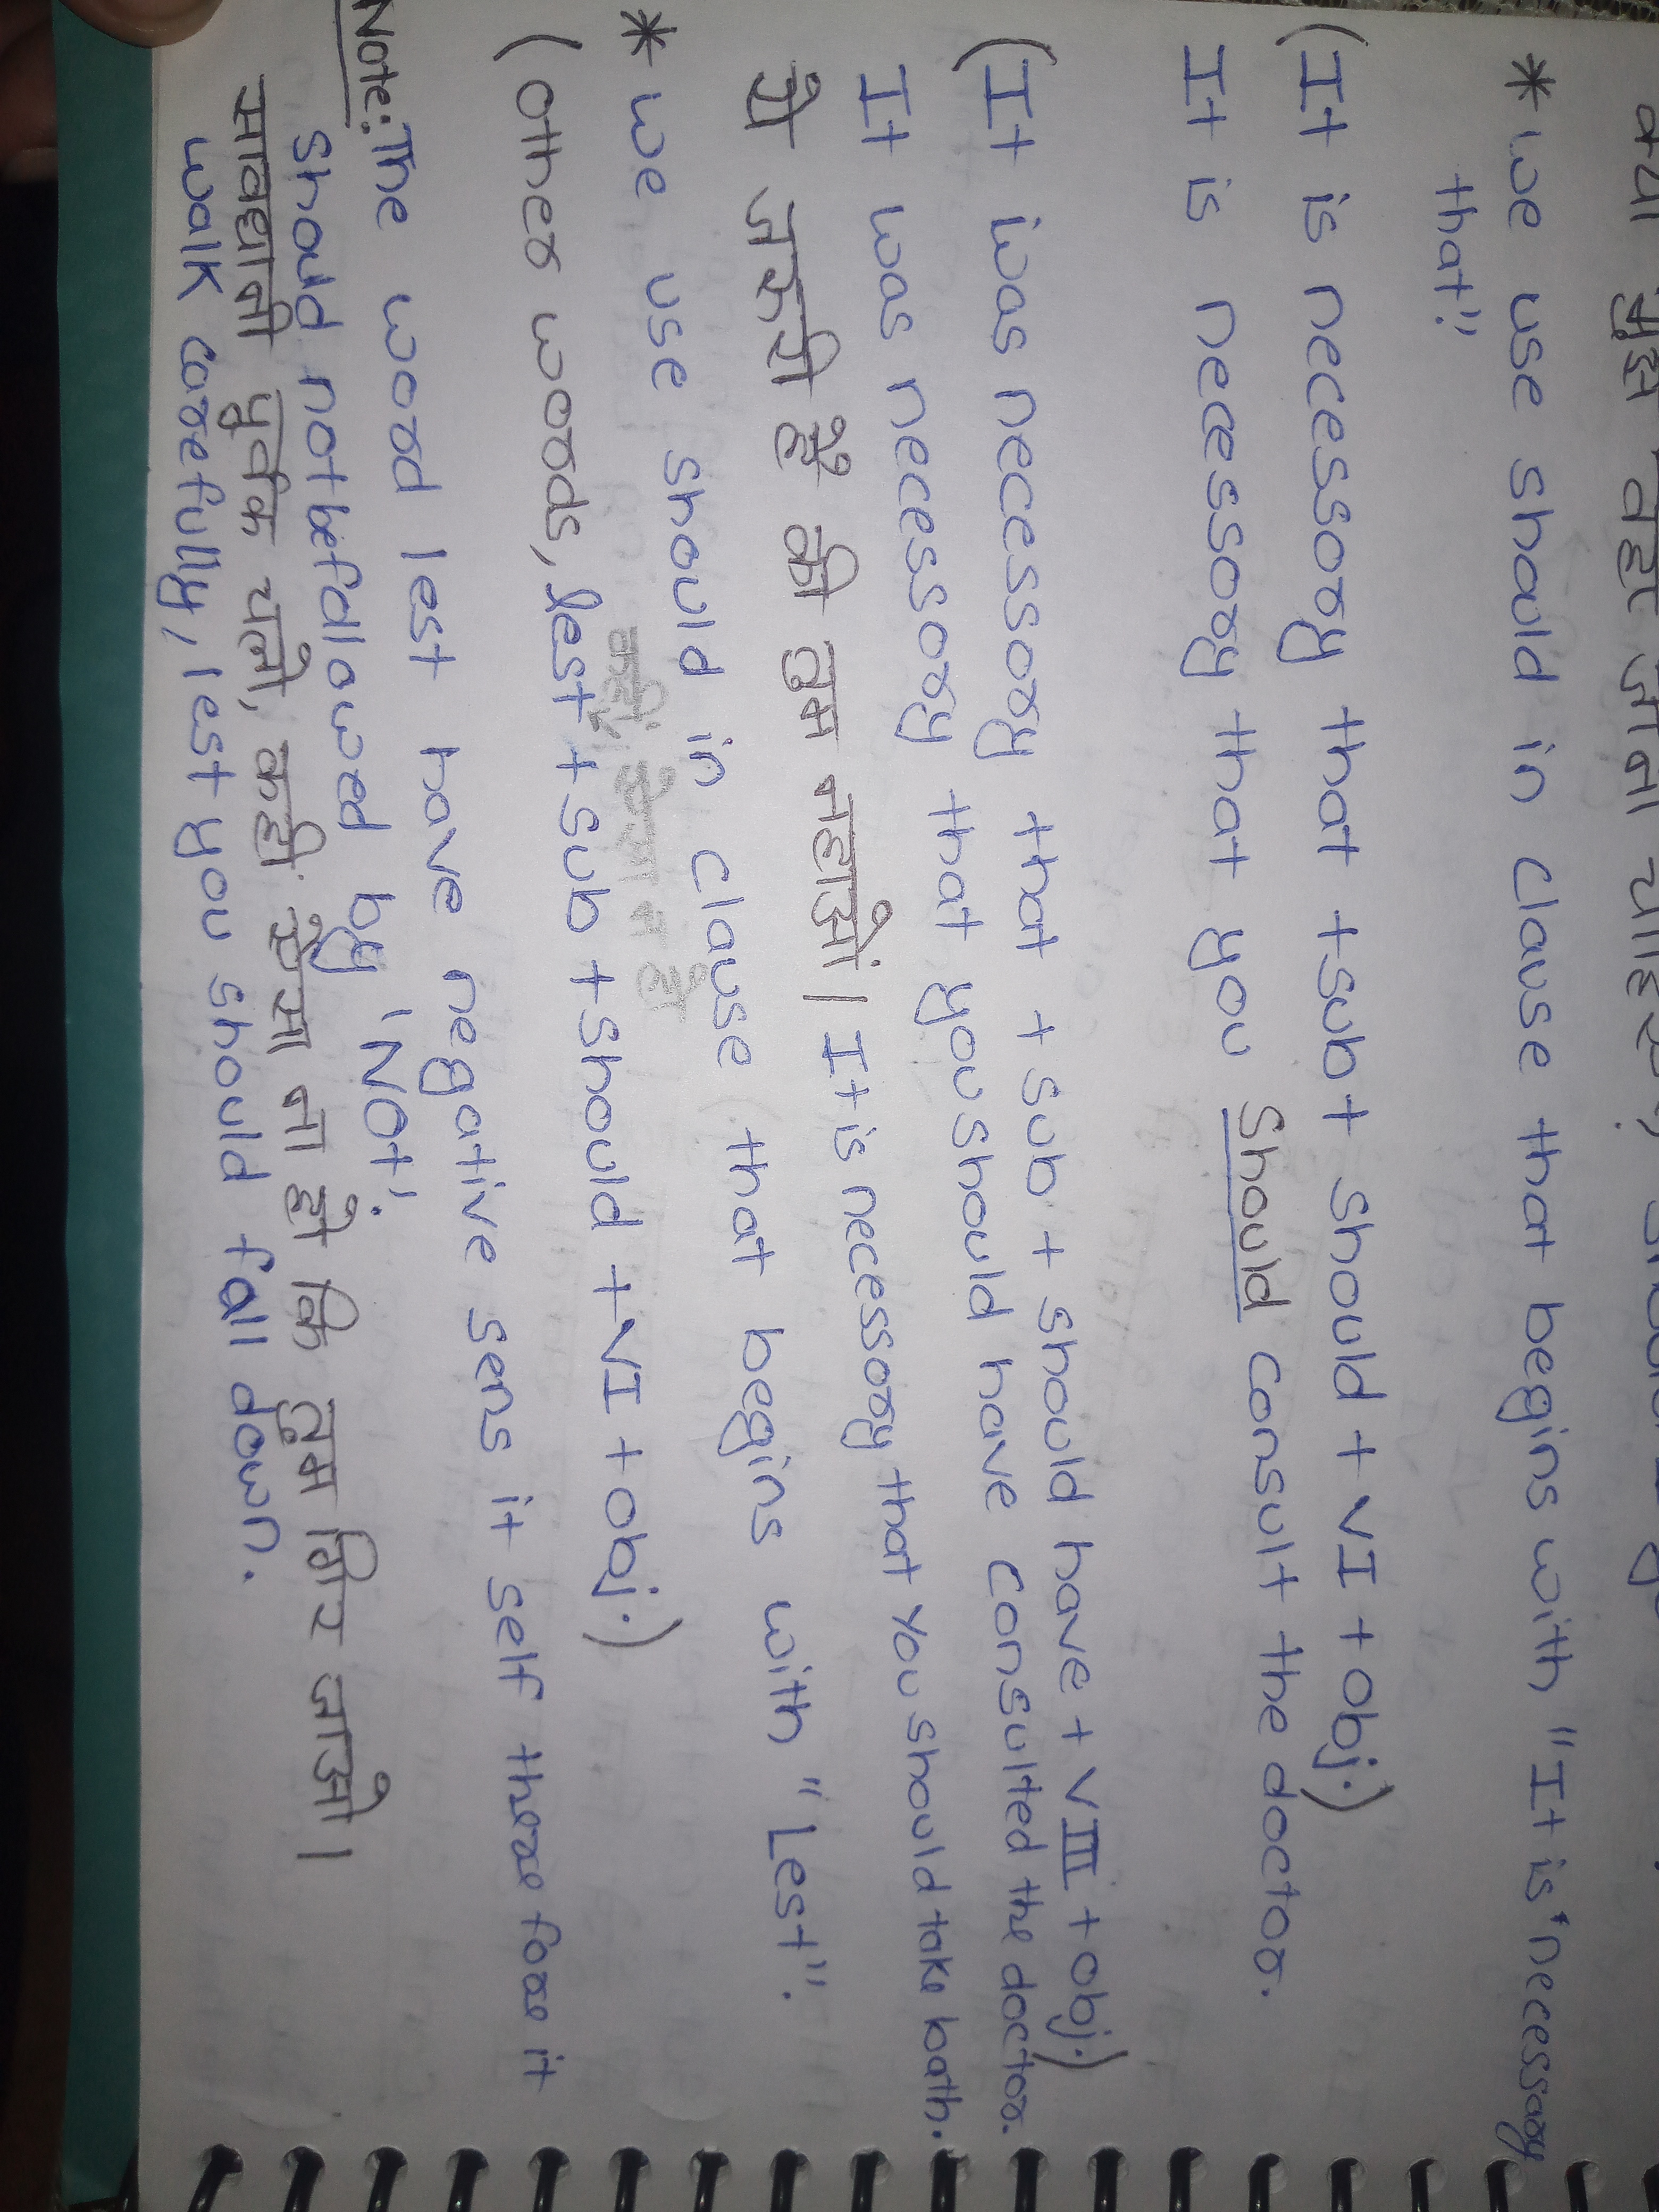 क्या मुझे वहां जाना चाहिए?
* we use should in clause that begins with "It is necessary
that".
(It is necessary that + sub + should + VI + obj.)
It is necessary that you should consult the doctor.
(It was necessary that + sub + should have + VIII + obj.)
It was necessary that you should have consulted the doctor.
ये जरूरी है की तुम नहाओं। It is necessary that you should take bath.
* we use should in clause that begins with "Lest".
कहीं ऐसा न हो
(other words, lest + sub + should + VI + obj.)
Note: The word lest have negative sens it self therefore it
should not be followed by 'Not'.
सावधानी पूर्वक चलो, कही ऐसा ना हो कि तुम गिर जाओ।
walk carefully, lest you should fall down.